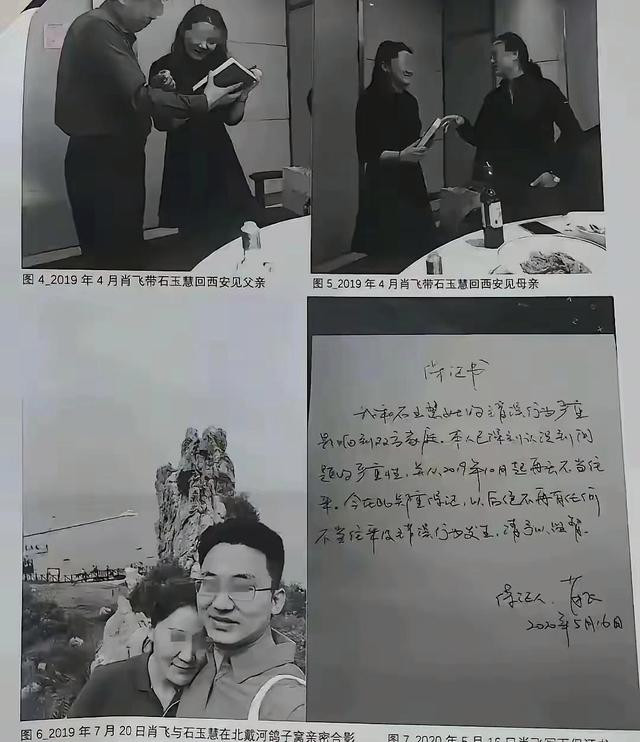 图 4_2019 年 4 月肖飞带石玉慧回西安见父亲
图 5_2019 年 4 月肖飞带石玉慧回西安见母亲
保证书
我和石玉慧女士的错误行为严重
影响到双方家庭。本人已深刻认识到问
题的严重性，并从2019年10月起再无不当往
来。今在此郑重保证，以后绝不再有任何
不当往来及错误行为发生，请予以监督。
保证人：肖飞
2020年5月16日
图 6_2019 年 7 月 20 日肖飞与石玉慧在北戴河鸽子窝亲密合影
图 7_2020 年 5 月 16 日肖飞写下保证书